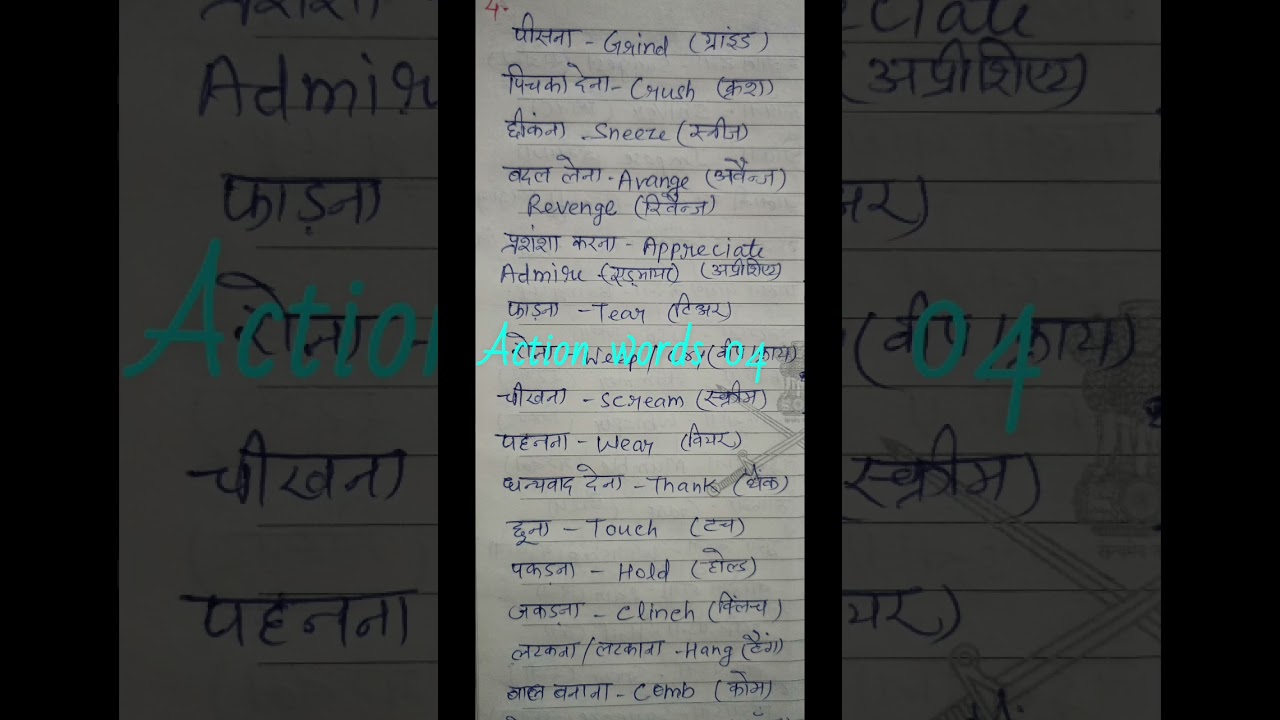 4.
पीसना - Grind (ग्राइंड)
पिचका देना - Crush (क्रश)
छींकना - Sneeze (स्नीज)
बदल लेना - Avange (अवैन्ज)
Revenge (रिवैन्ज)
प्रशंशा करना - Appreciate
Admire - (एड्मायर) (अप्रीशिएट)
फाड़ना - Tear (टिअर)
रोना - Weep / Cry (वीप क्राय)
Action words 04
चीखना - Scream (स्क्रीम)
पहनना - Wear (वियर)
धन्यवाद देना - Thank (थैंक)
छूना - Touch (टच)
पकड़ना - Hold (होल्ड)
जकड़ना - Clinch (क्लिंच)
लटकना / लटकाना - Hang (हैंग)
बाल बनाना - Comb (कोम)